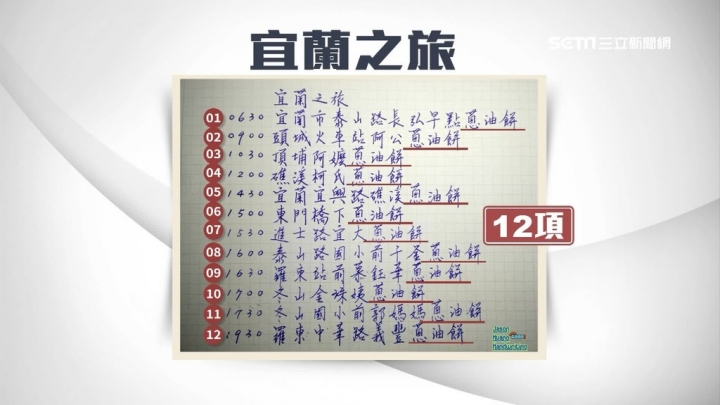 宜蘭之旅
SETN三立新聞網
宜蘭之旅
01 0630 宜蘭市泰山路長弘早點蔥油餅
02 0900 頭城火車站阿公蔥油餅
03 1030 頂埔阿嬤蔥油餅
04 1200 礁溪柯氏蔥油餅
05 1430 宜蘭宜興路礁溪蔥油餅
06 1500 東門橋下蔥油餅
07 1530 進士路宜大蔥油餅
12項
08 1600 泰山路國小前千釜蔥油餅
09 1630 羅東站前葉鈺華蔥油餅
10 1700 冬山金珠姨蔥油餅
11 1730 冬山國小前郭媽媽蔥油餅
12 1930 羅東中華路義豐蔥油餅
Jason
Huang
Handwriting